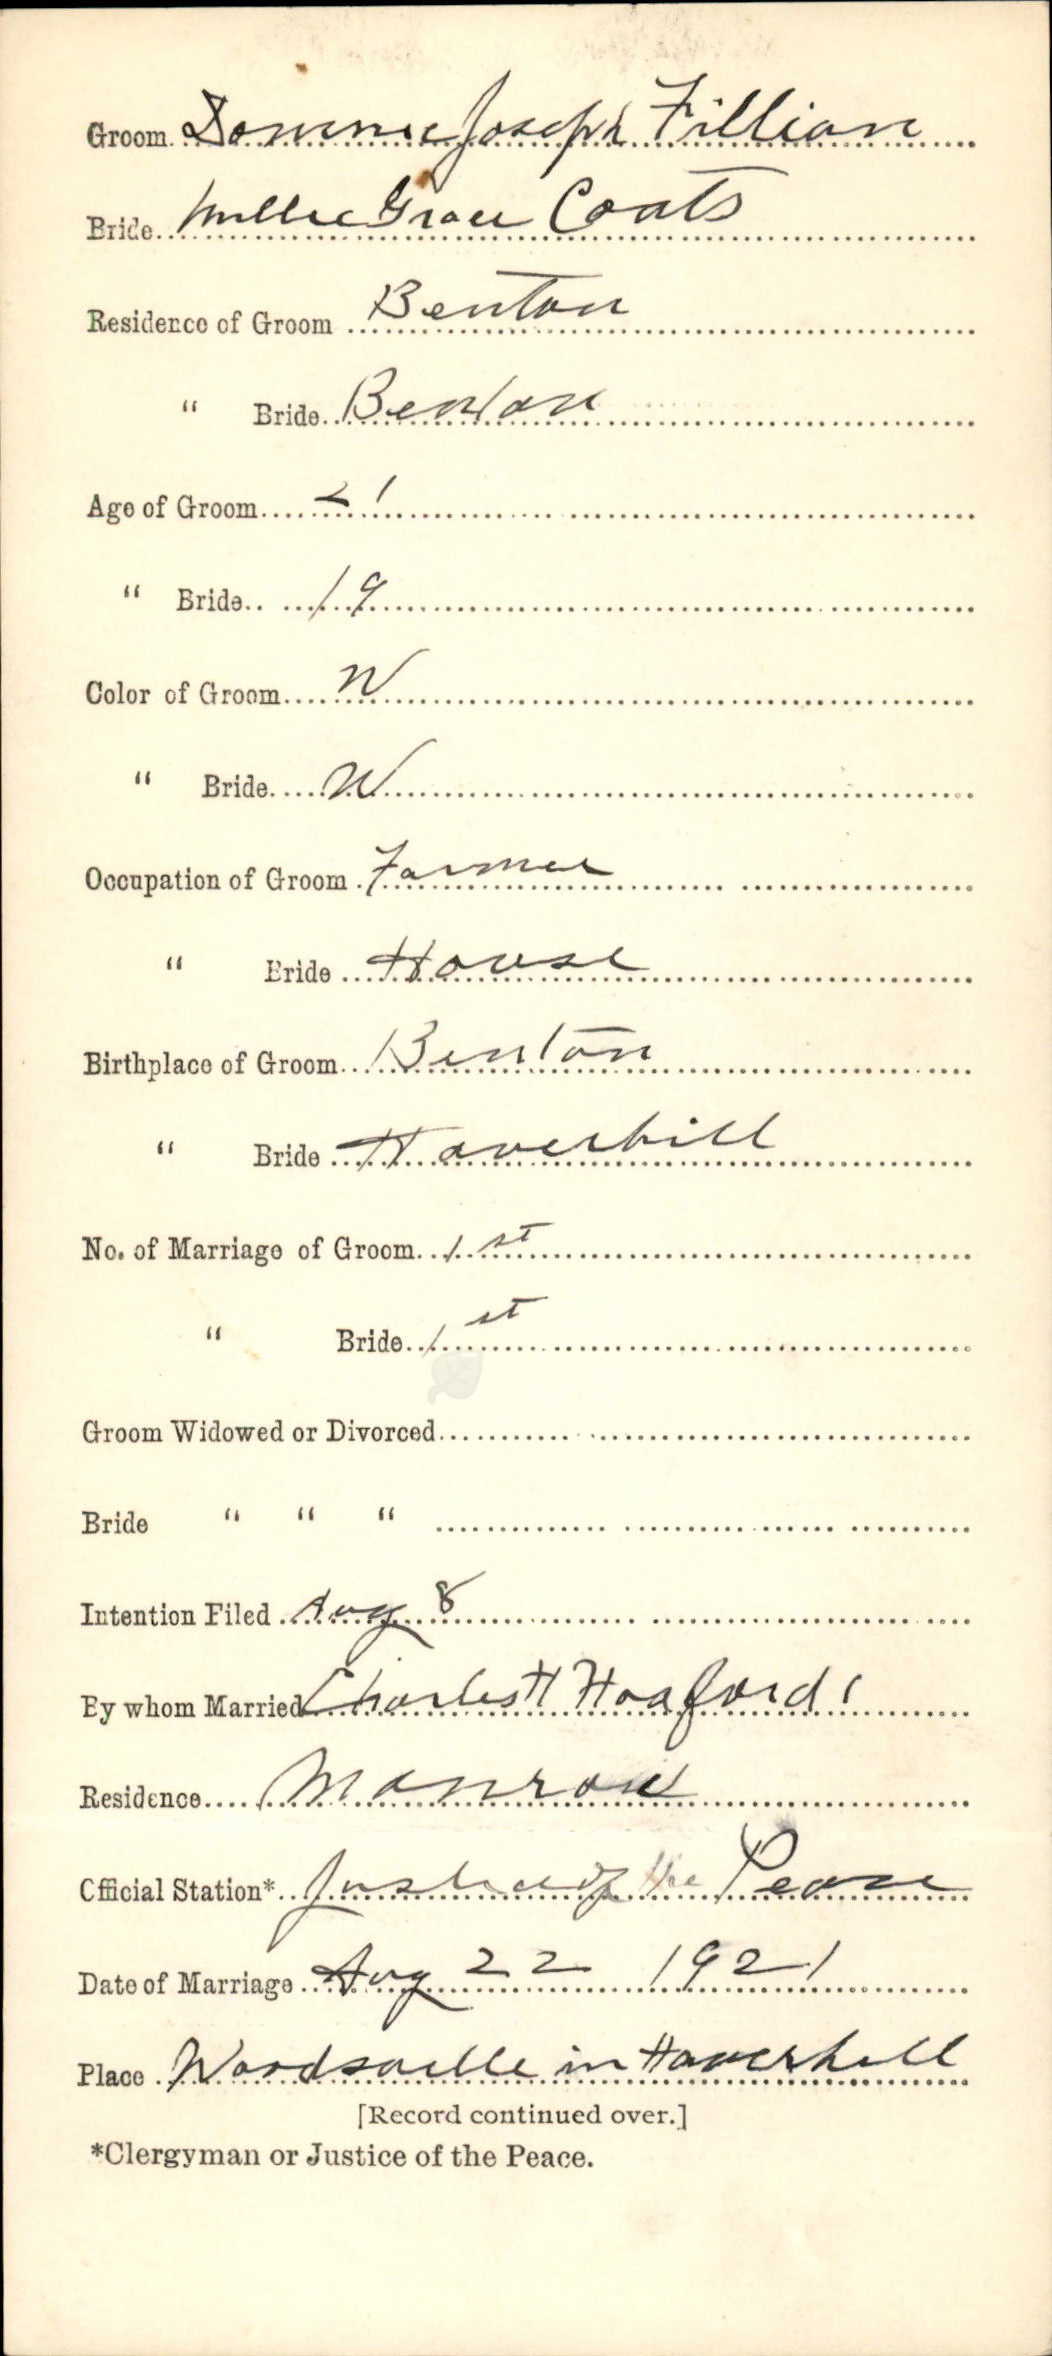 Groom Dominic Joseph Fillian
Bride Millie Grace Coats
Residence of Groom Benton
" Bride Benton
Age of Groom 21
" Bride 19
Color of Groom W
" Bride W
Occupation of Groom Farmer
" Bride House
Birthplace of Groom Benton
" Bride Haverhill
No. of Marriage of Groom 1st
" Bride 1st
Groom Widowed or Divorced
Bride " " "
Intention Filed Aug 8
By whom Married Charles H
Residence Monroe
Official Station* Justice of the Peace
Date of Marriage Aug 22 1921
Place Woodsville in Haverhill
[Record continued over.]
*Clergyman or Justice of the Peace.